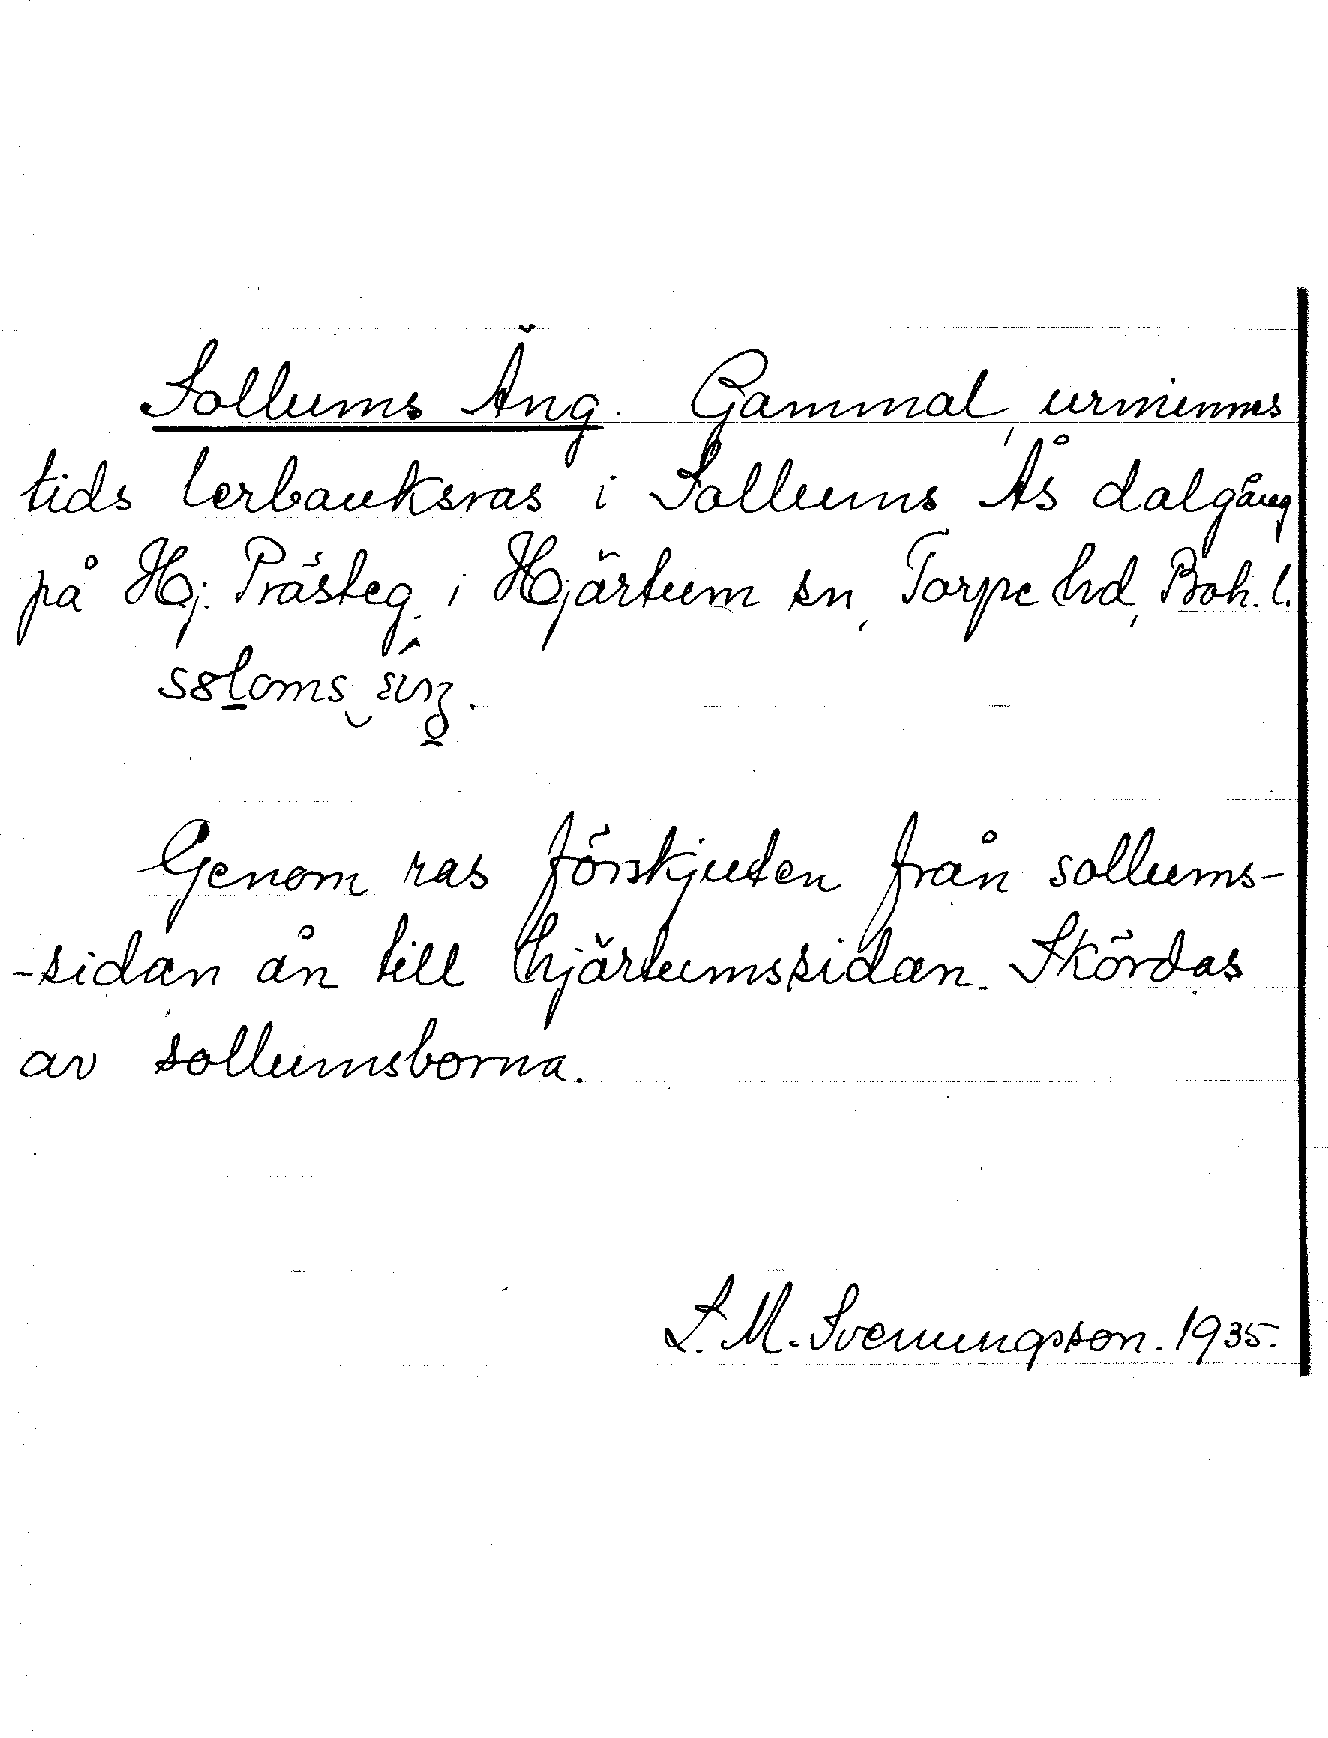 Sollums Äng. Gammal, urminnes
tids lerbanksras i Sollums Ås dalgång
på Hj. Prästeg. i Hjärtum sn, Torpe hd, Boh. l.
Genom ras förskjuten från sollums-
-sidan ån till hjärtumssidan. Skördas
av sollumsborna.
S. M. Svenungsson. 1935.